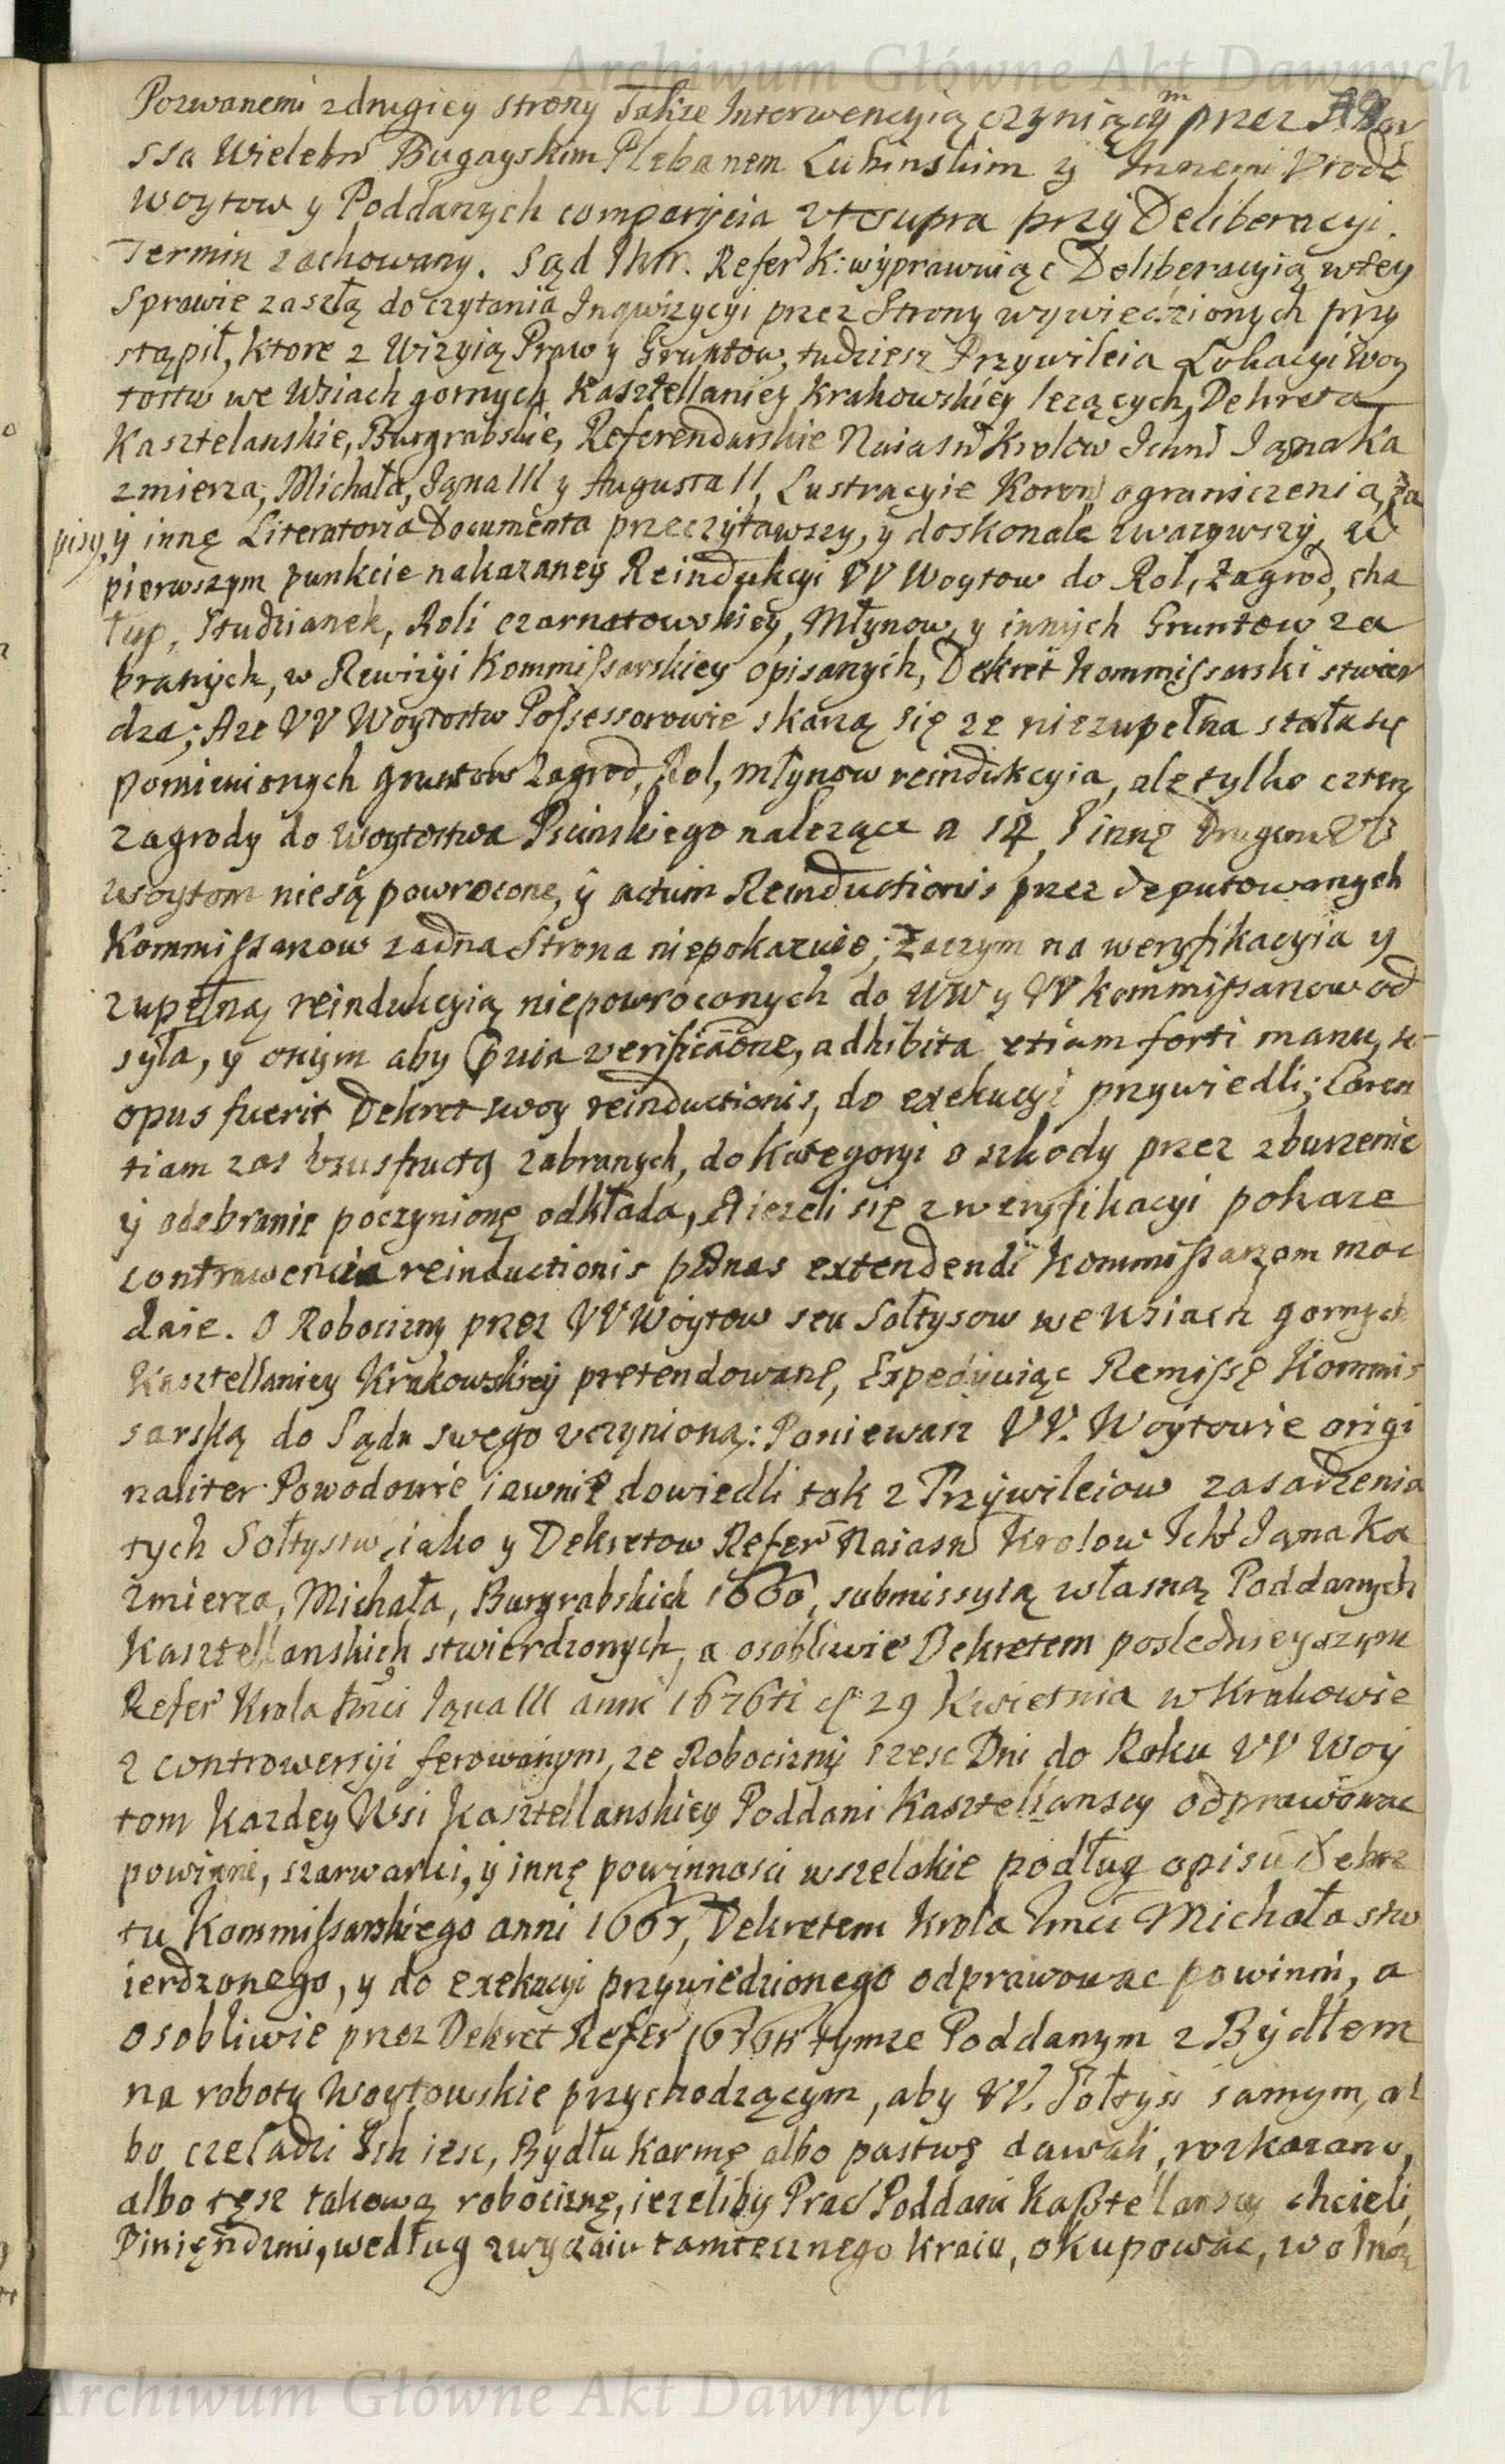 Archiwum Główne Akt Dawnych
Pozwanemi z drugiey strony Także Interwencyią czyniącym przez
ssa Wielebn Bugayskim Plebanem Lubinskim y Innemi
Woytow y Poddanych comparycia vt supra przy Deliberacyi.
Termin zachowany. Sąd Nin. Refer K: wyprawuiąc Deliberacyią w tey
Sprawie zaszłą do czytania Inqwizycyi przez Strony wywiedzionych przy
stąpił, ktore z Wizyią Praw y Gruntow, tudziesz Przywileia Lokacyi Woy
tostw we Wsiach gornych Kasztellaniey Krakowskiey lezących, Dekreta
Kasztelanskie, Burgrabskie, Referendarskie Naiasn Krolow Ichm Iąna Ka
zmierza, Michała, Iąna III y Augusta II, Lustracyie Koron ograniczenia, za
pisy, y innę Literatoria Documenta przeczytawszy, y doskonale zwazywszy, w
pierwszym punkcie nakazaney Reindukcyi VV Woytow do Rol, Zagrod, cha
łup, Studzianek, Roli czarnotowskiey, Młynow, y innych Gruntow za
branych, w Rewizyi Kommissarskiey opisanych, Dekret Kommissarski stwier
dza; Aze VV Woytostw Possessorowie skarzą się ze niezupełna stała się
pomienionych gruntow Zagrod, Rol, młynow reindukcyia, ale tylko cztery
zagrody do Woytostwa Pcimskiego nalezące a 14, I innę Drugim VV
Woytom nie są powrocone, y actum Reinductionis przez deputowanych
Kommissarzow zadna Strona niepokazuie; Zaczym na weryfikacyia y
zupełną reindukcyią niepowroconych do WW y VV Kommissarzow od
syła, y onym aby pvia verificaone, adhibita etiam forti manu, si
opus fuerit Dekret swoy reinductionis, do exekucyi przywiedli; Caren
tiam zas vsusfructq zabranych, do kategoryi o szkody przez zburzenie
y odebranie poczynionę odkłada, A iezeli się z weryfikacyi pokaze
contrawencia reinductionis pænas extendendi Kommissarzom moc
daie. O Robocizny przez VV Woytow seu Sołtysow we Wsiach gornych
Kasztellaniey Krakowskiey pretendowanę, Expedyuiąc Remissę Kommis
sarską do Sądu swego vczynioną: Poniewasz VV. Woytowie origi
naliter Powodowie iawnie dowiedli tak z Przywileiow zasadzenia
tych Sołtystw, iako y Dekretow Refer Naiasn Krolow Ich Iąna Ka
zmierza, Michała, Burgrabskich 1660, submissyią własną Poddanych
Kasztellanskich stwierdzonych, a osobliwie Dekretem posledneyszym
Refer Krola Imci Iąna III anni 1676ti 29 Kwietnia w Krakowie
z controwersyi ferowanym, ze Robocizny szesc Dni do Roku VV Woy
tom Kazdey Wsi Kasztellanskiey Poddani Kasztellanscy odprawowac
powinni, szarwarki, y innę powinnosci wszelakie podług opisu Dekre
tu Kommissarskiego anni 1665, Dekretem Krola Imci Michała stw
ierdzonego, y do exekucyi przywiedzionego odprawowac powinni, a
osobliwie przez Dekret Refer 1676 tymze Poddanym z Bydłem
na roboty Woytowskie przychodzącym, aby VV. Sołtysi samym, al
bo czeladzi Ich iesc, Bydłu Karmę albo pastwę dawali, rozkazano,
albo tęsz takową robociznę, iezeliby Prac Poddani Kasztellanscy chcieli,
Pinięndzmi, według zwyczaiu tamtecznego kraiu, okupowac, wolno
Archiwum Główne Akt Dawnych